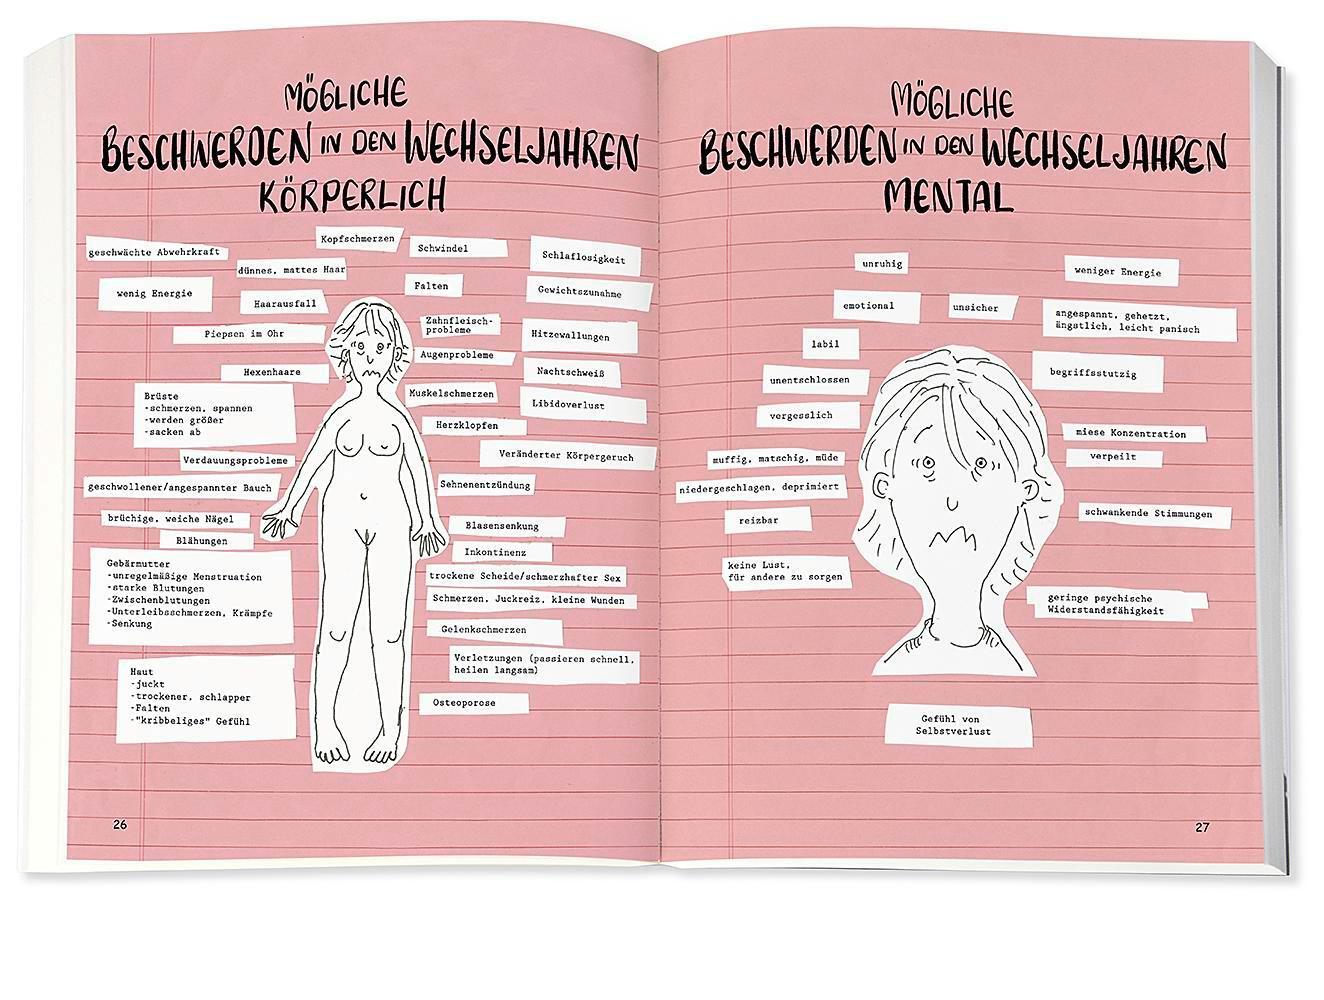 MÖGLICHE
BESCHWERDEN IN DEN WECHSELJAHREN
KÖRPERLICH
geschwächte Abwehrkraft
Kopfschmerzen
Schwindel
Schlaflosigkeit
dünnes, mattes Haar
wenig Energie
Haarausfall
Falten
Gewichtszunahme
Piepsen im Ohr
Zahnfleisch-
probleme
Hitzewallungen
Hexenhaare
Augenprobleme
Nachtschweiß
Brüste
-schmerzen, spannen
-werden größer
-sacken ab
Muskelschmerzen
Libidoverlust
Herzklopfen
Verdauungsprobleme
Veränderter Körpergeruch
geschwollener/angespannter Bauch
Sehnenentzündung
brüchige, weiche Nägel
Blasensenkung
Blähungen
Inkontinenz
Gebärmutter
-unregelmäßige Menstruation
-starke Blutungen
-Zwischenblutungen
-Unterleibsschmerzen, Krämpfe
-Senkung
trockene Scheide/schmerzhafter Sex
Schmerzen, Juckreiz, kleine Wunden
Gelenkschmerzen
Verletzungen (passieren schnell,
heilen langsam)
Haut
-juckt
-trockener, schlapper
-Falten
-"kribbeliges" Gefühl
Osteoporose
26
MÖGLICHE
BESCHWERDEN IN DEN WECHSELJAHREN
MENTAL
unruhig
weniger Energie
emotional
unsicher
angespannt, gehetzt,
ängstlich, leicht panisch
labil
unentschlossen
begriffsstutzig
vergesslich
miese Konzentration
muffig, matschig, müde
verpeilt
niedergeschlagen, deprimiert
reizbar
schwankende Stimmungen
keine Lust,
für andere zu sorgen
geringe psychische
Widerstandsfähigkeit
Gefühl von
Selbstverlust
27